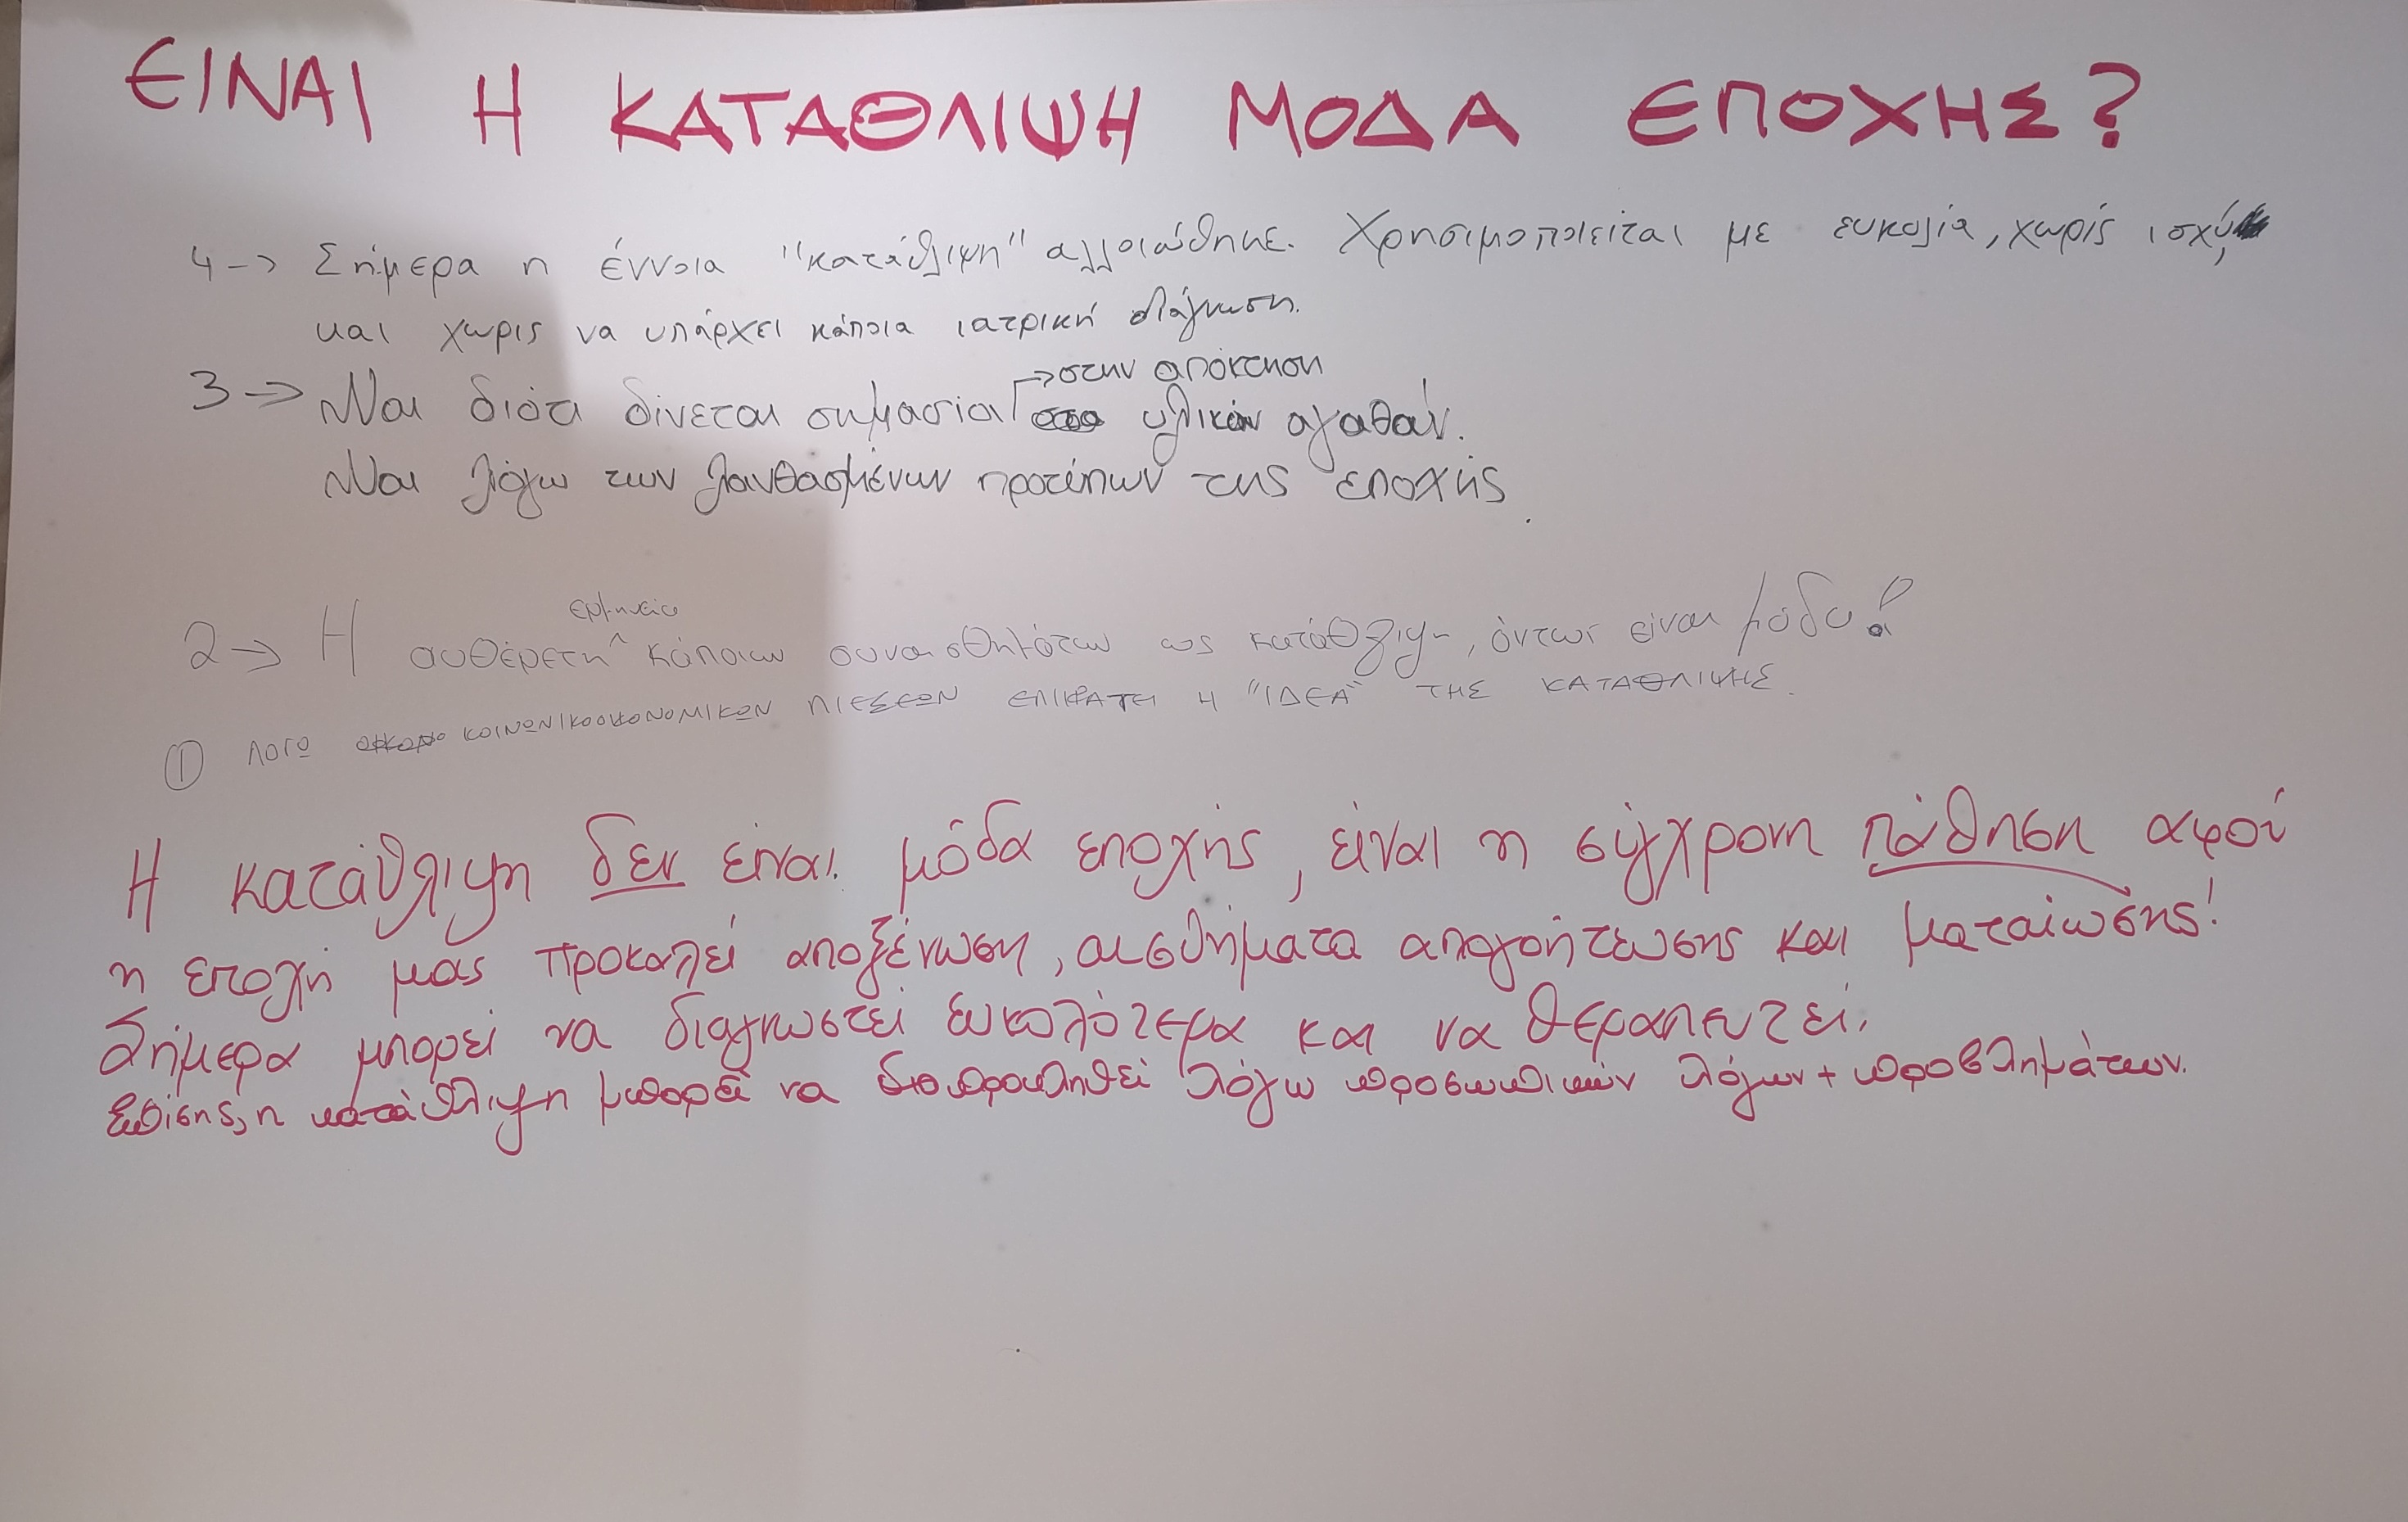 ΕΙΝΑΙ Η ΚΑΤΑΘΛΙΨΗ ΜΟΔΑ ΕΠΟΧΗΣ?
4 -> Σήμερα η έννοια "κατάθλιψη" αλλοιώθηκε. Χρησιμοποιείται με ευκολία, χωρίς ισχύ,
και χωρις να υπάρχει κάποια ιατρική διάγνωση.
→ στην απόκτηση
3 → Ναι διότι δίνεται σημασία υλικών αγαθών.
Ναι λόγω των λανθασμένων προτύπων της εποχής.
ερμηνεία
2 → Η αυθέρετη ^ κάποιων συναισθημάτων ως κατάθλιψη, όντως είναι μόδα!
① ΛΟΓΩ ΚΟΙΝΩΝΙΚΟΟΙΚΟΝΟΜΙΚΩΝ ΠΙΕΣΕΩΝ ΕΠΙΚΡΑΤΕΙ Η "ΙΔΕΑ" ΤΗΣ ΚΑΤΑΘΛΙΨΗΣ.
Η κατάθλιψη δεν είναι μόδα εποχής, είναι η σύγχρονη πάθηση αφού
η εποχή μας προκαλεί αποξένωση, αισθήματα απογοήτευσης και ματαίωσης!
Σήμερα μπορεί να διαγνωστεί ευκολότερα και να θεραπευτεί.
Επίσης, η κατάθλιψη μπορεί να διαπροκληθεί λόγω προσωπικών λόγων + προβλημάτων.